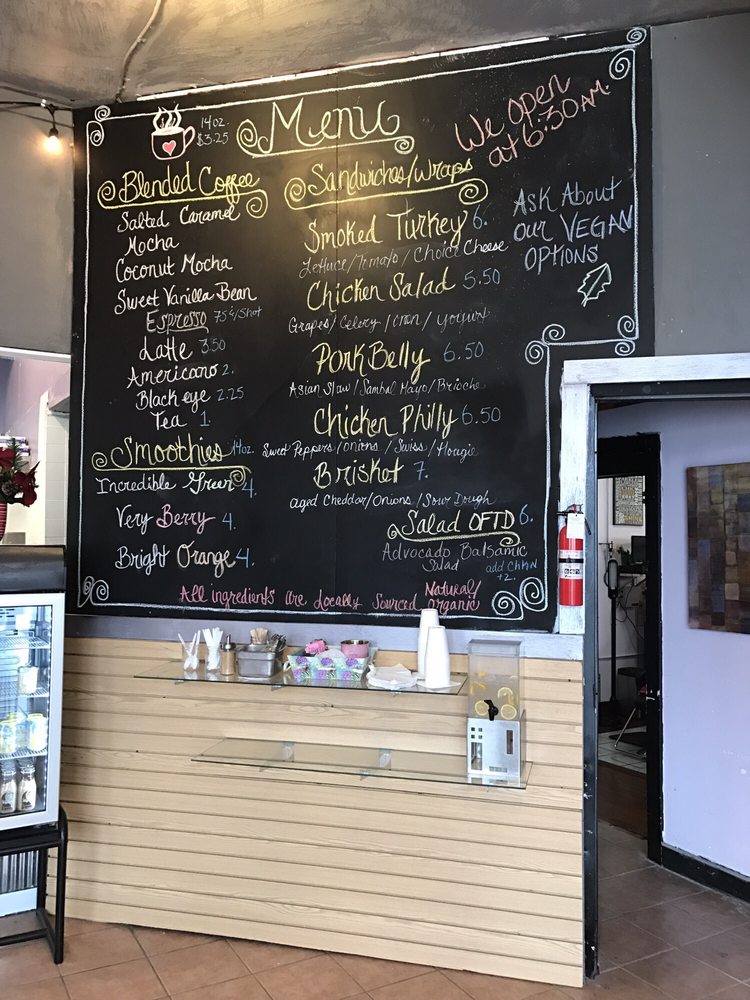 14oz.
$3.25
Menu
We Open
at 6:30 AM.
Blended Coffee
Salted Caramel
Mocha
Coconut Mocha
Sweet Vanilla Bean
Espresso 75¢/Shot
Latte 3.50
Americano 2.
Black eye 2.25
Tea 1.
Smoothies 14oz.
Incredible Green 4.
Very Berry 4.
Bright Orange 4.
Sandwiches/Wraps
Smoked Turkey 6.
Lettuce/Tomato/Choice Cheese
Chicken Salad 5.50
Grapes/Celery/Onion/Yogurt
Pork Belly 6.50
Asian Slaw/Sambal Mayo/Brioche
Chicken Philly 6.50
Sweet Peppers/Onions/Swiss/Hougie
Brisket 7.
aged Cheddar/Onions/Sour Dough
Salad OFTD 6.
Advocado Balsamic
Salad add Chkn
+2.
Ask About
our VEGAN
OPTIONS
All ingredients are Locally Sourced Natural/
organic